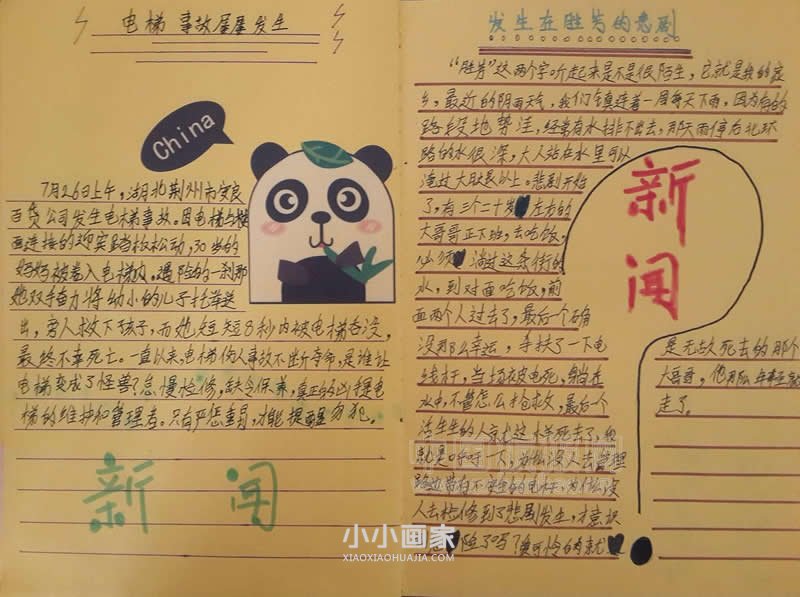 电梯 事故屡屡发生
China
7月26日上午，湖北荆州市安良
百货公司发生电梯事故。因电梯与楼
面连接的迎宾踏板松动，30岁的
妈妈被卷入电梯内。遇险的一刹那
她双手奋力将幼小的儿子托举送
出，旁人救下孩子，而她短短8秒内被电梯吞没，
最终不幸死亡。一直以来，电梯伤人事故不断夺命，是谁让
电梯变成了怪兽？怠慢检修，缺令保养，真正的凶手是电
梯的维护和管理者。只有严惩重罚，才能提醒勿犯。
新闻
发生在胜芳的悲剧
“胜芳”这两个字听起来是不是很陌生，它就是我的家
乡，最近的阴雨天气，我们镇连着一周每天下雨，因为有的
路段地势洼，经常有水排不出去，那天雨停后北环
路的水很深，大人站在水里可以
淹过大腿根以上。悲剧开始
了，有三个二十岁左右的
大哥哥正下班，去吃饭，
必须淌过这条街的
水，到对面吃饭，前
面两个人过去了，最后一个确
没那么幸运，手扶了一下电
线杆，当场被电死，躺在
水中，不管怎么抢救，最后一个
活生生的人就这样死去了，我
就是呼吁一下，为什么没人去管理
路边带有不安全的电杆，为什么没
人去检修到了悲剧发生，才意识
险了吗？真可怜的就
是无故死去的那个
大哥哥，他那么年轻就
走了。
新闻
小小画家
XIAOXIAOHUAJIA.COM